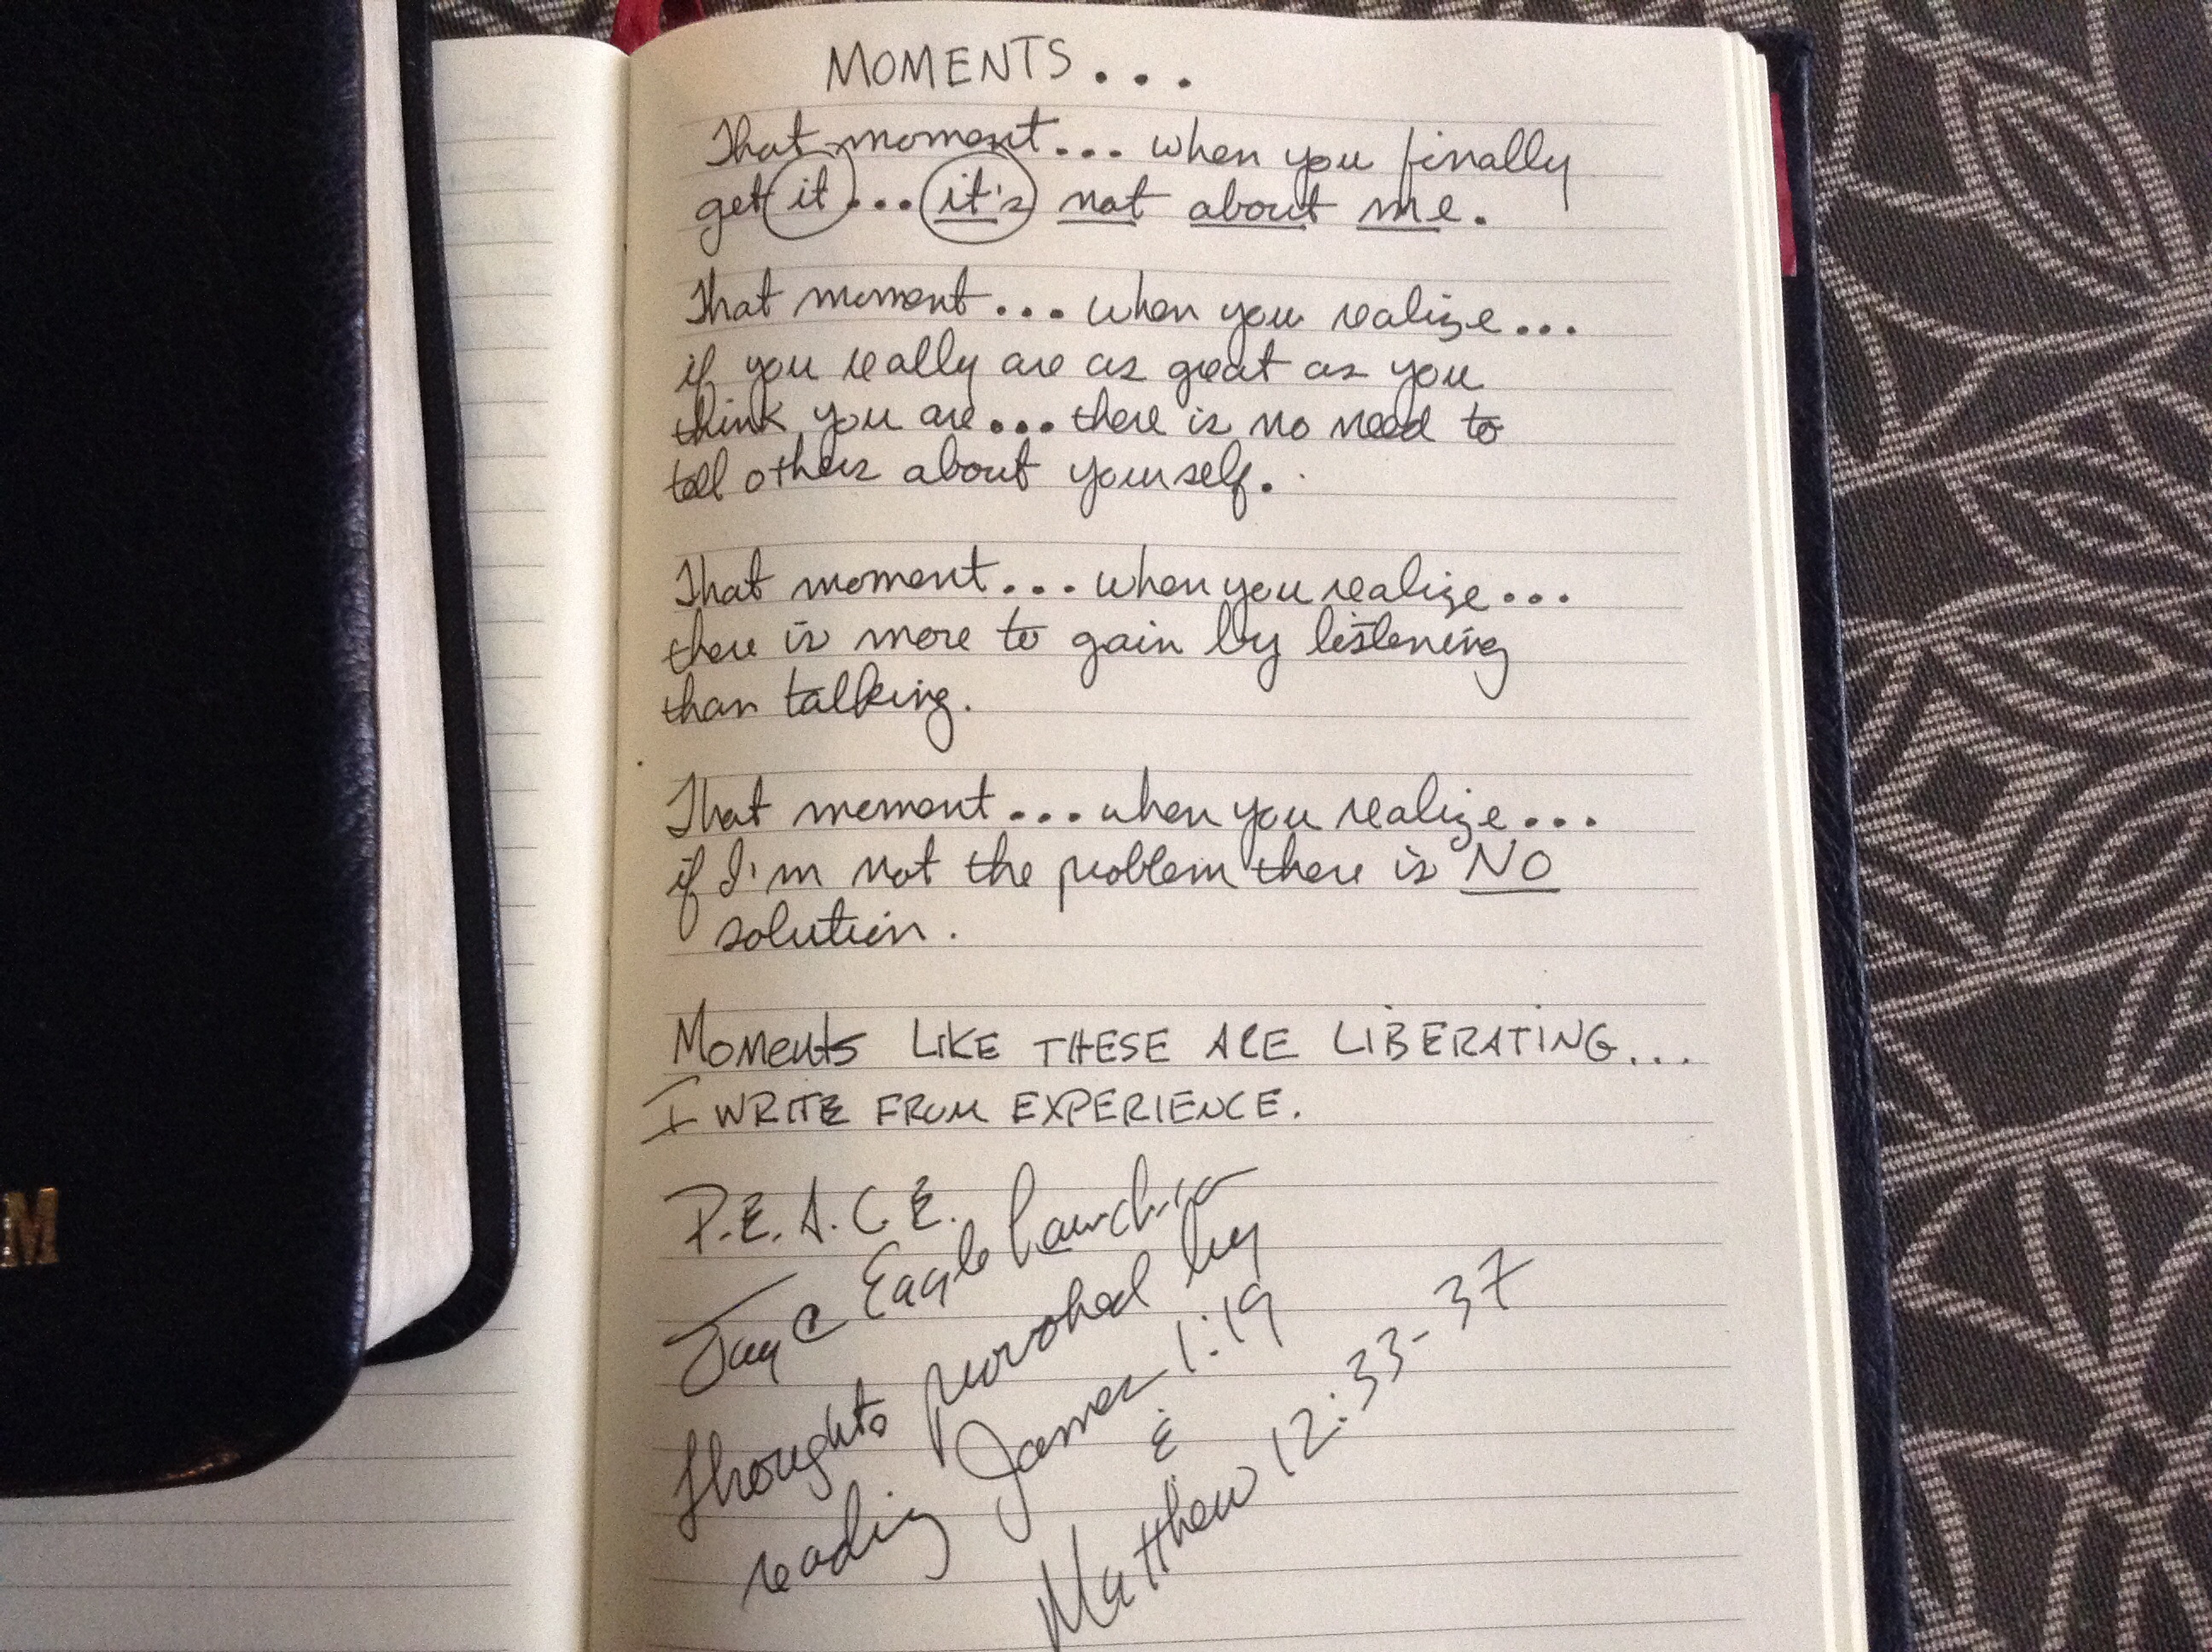 MOMENTS...
That moment... when you finally
get it... it's not about me.
That moment... when you realize...
if you really are as great as you
think you are... there is no need to
tell others about yourself.
That moment... when you realize...
there is more to gain by listening
than talking.
That moment... when you realize...
if I'm not the problem there is NO
solution.
Moments LIKE THESE ARE LIBERATING...
I WRITE FROM EXPERIENCE.
P.E.A.C.E.
Jay @ Eagle Launch
thoughts provoked by
reading James 1:19
&
Matthew 12:33-37
M